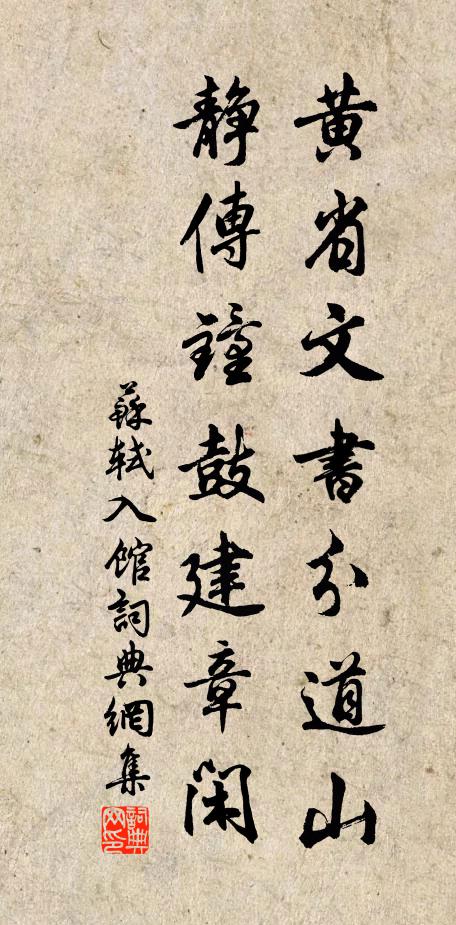 黄省文書分道山
静傳鐘鼓建章閑
蘇軾入館詞典網集
詞典网印